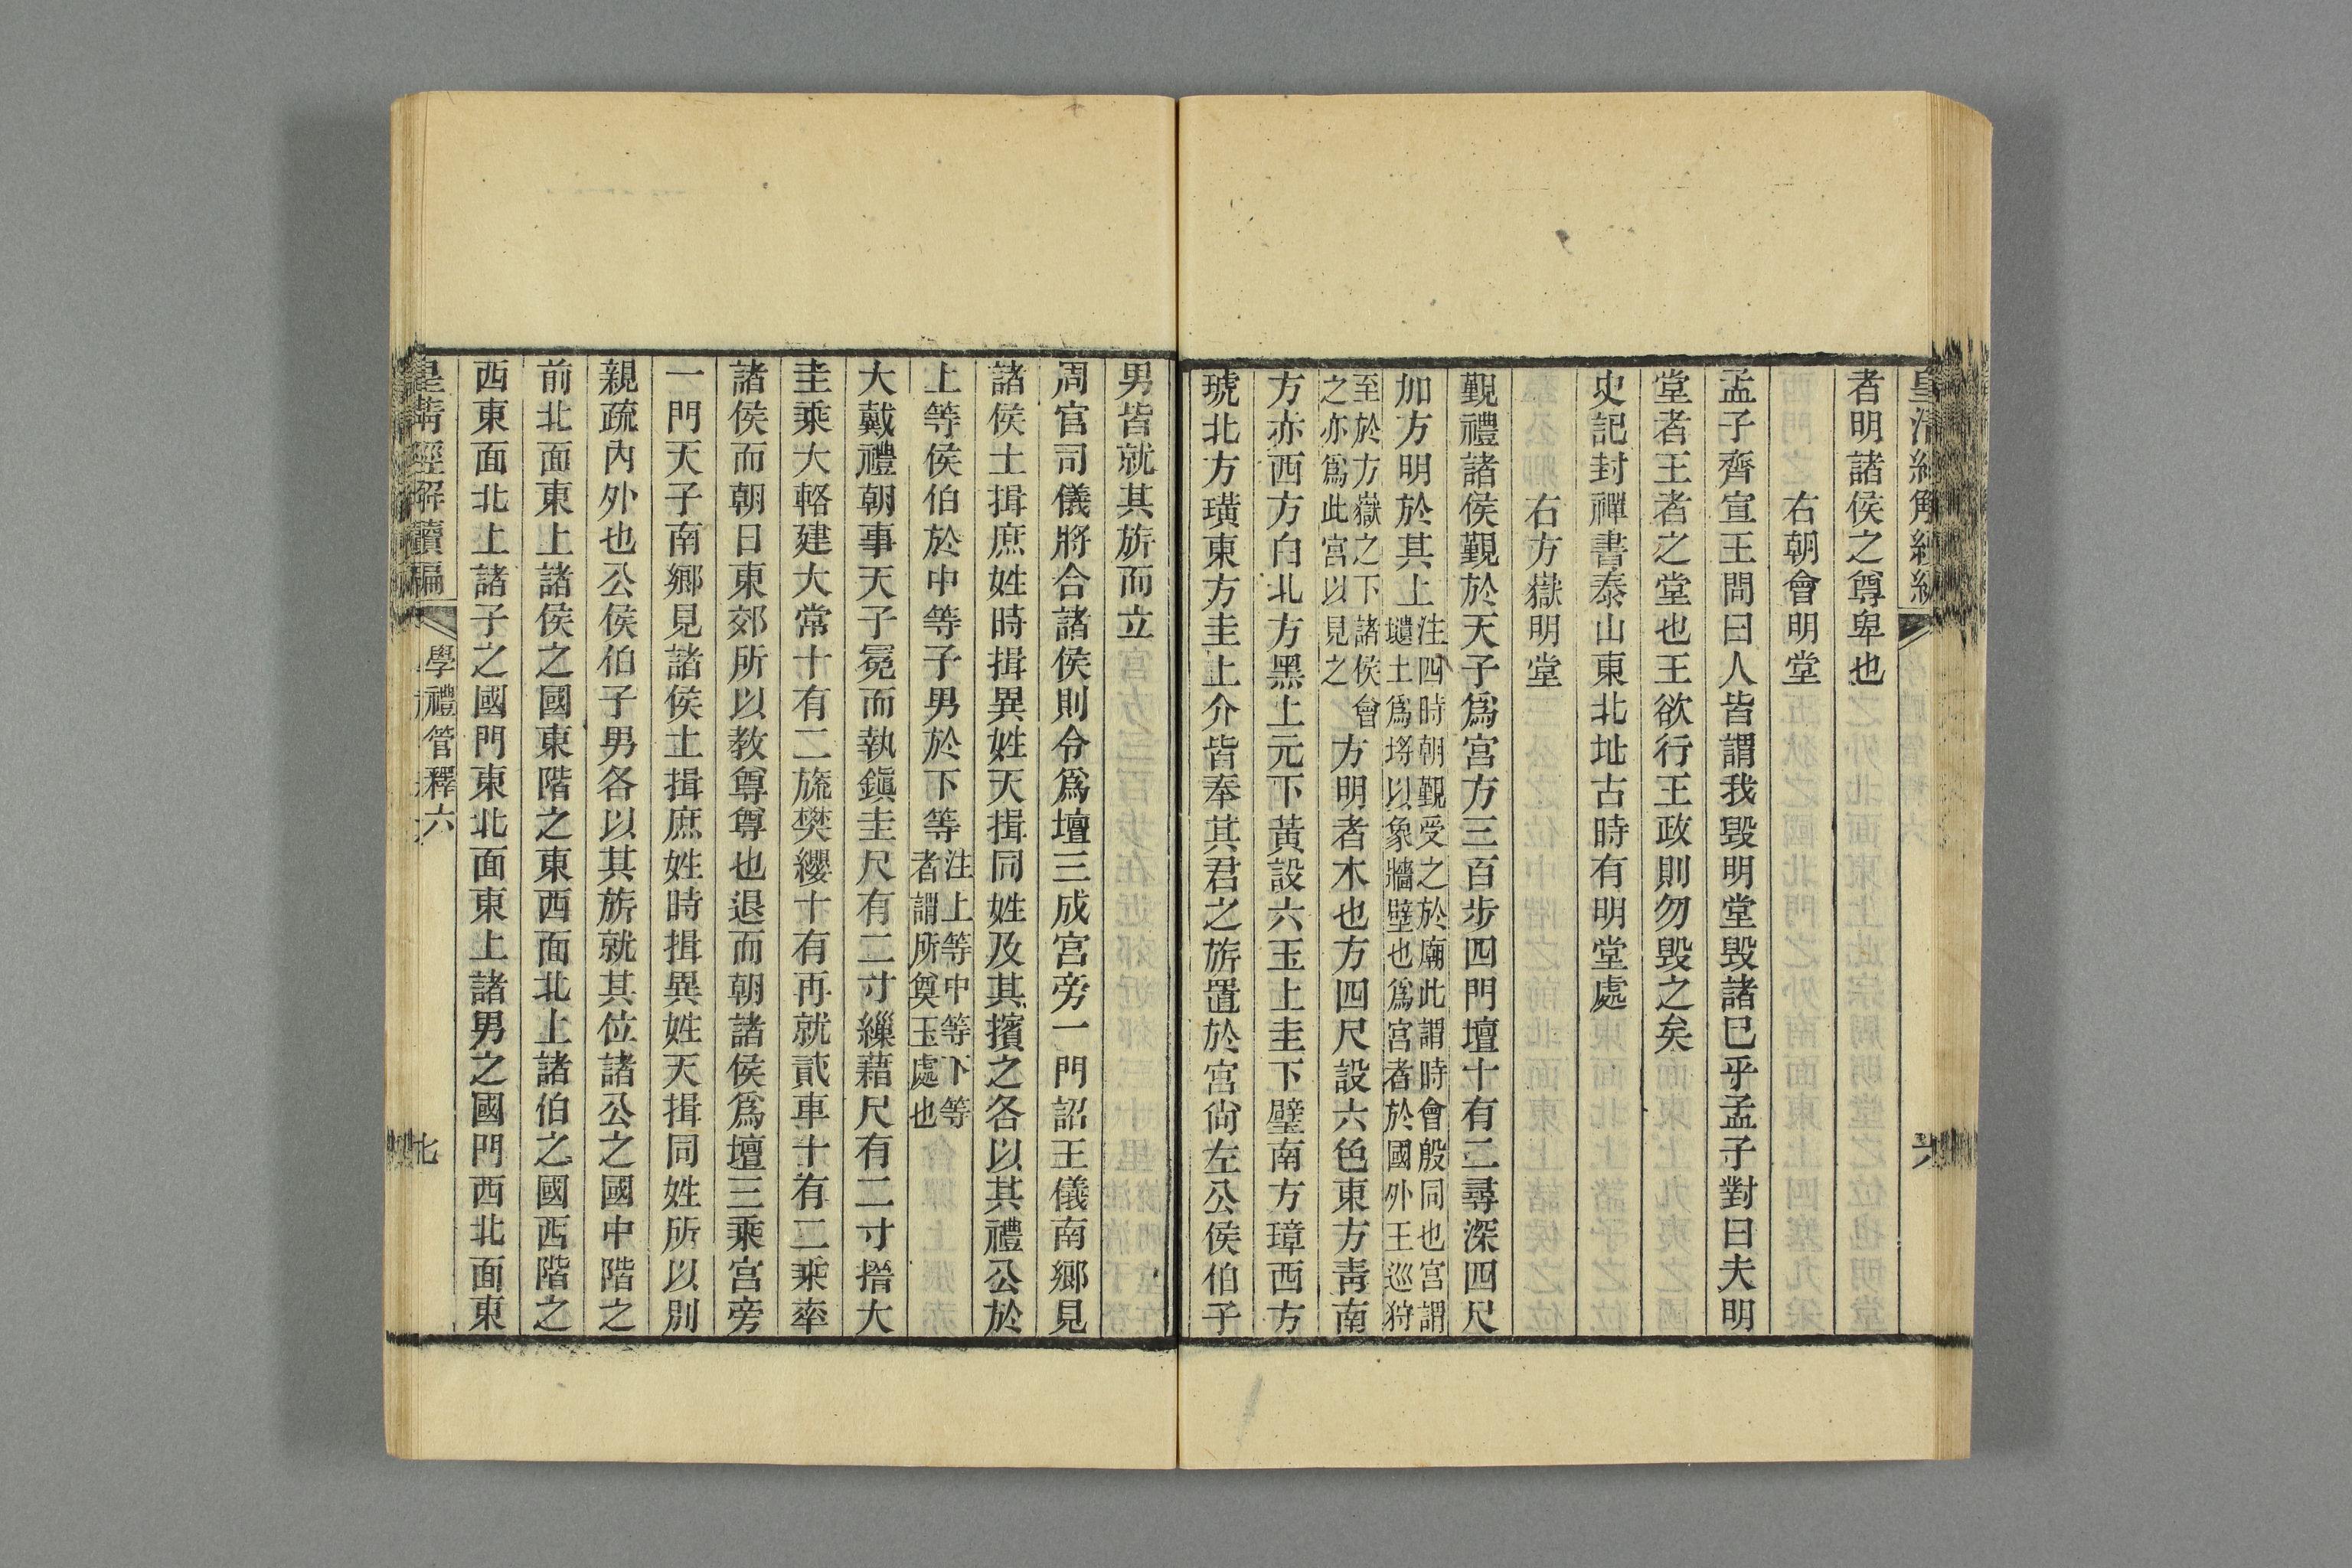 者明諸侯之尊卑也
右朝會明堂
孟子齊宣王問曰人皆謂我毀明堂毀諸已乎孟子對曰夫明
堂者王者之堂也王欲行王政則勿毀之矣
史記封禪書泰山東北址古時有明堂處
右方嶽明堂
覲禮諸侯覲於天子爲宮方三百步四門壇十有二尋深四尺
加方明於其上注四時朝覲受之於廟此謂時會殷同也宮謂
壝土爲埒以象牆壁也爲宮者於國外王巡狩
至於方嶽之下諸侯會
之亦爲此宮以見之
方明者木也方四尺設六色東方靑南
方赤西方白北方黑上元下黃設六玉上圭下璧南方璋西方
琥北方璜東方圭上介皆奉其君之旂置於宮尙左公侯伯子
男皆就其旂而立
周官司儀將合諸侯則令爲壇三成宮旁一門詔王儀南鄉見
諸侯土揖庶姓時揖異姓天揖同姓及其擯之各以其禮公於
上等侯伯於中等子男於下等注上等中等下等
者謂所奠玉處也
大戴禮朝事天子冕而執鎭圭尺有二寸繅藉尺有二寸搢大
圭乘大輅建大常十有二旒樊纓十有再就貳車十有二乘率
諸侯而朝日東郊所以教尊尊也退而朝諸侯爲壇三乘宮旁
一門天子南鄉見諸侯土揖庶姓時揖異姓天揖同姓所以別
親疏內外也公侯伯子男各以其旂就其位諸公之國中階之
前北面東上諸侯之國東階之東西面北上諸伯之國西階之
西東面北上諸子之國門東北面東上諸男之國門西北面東
皇淸經解續編
學禮管釋六
七